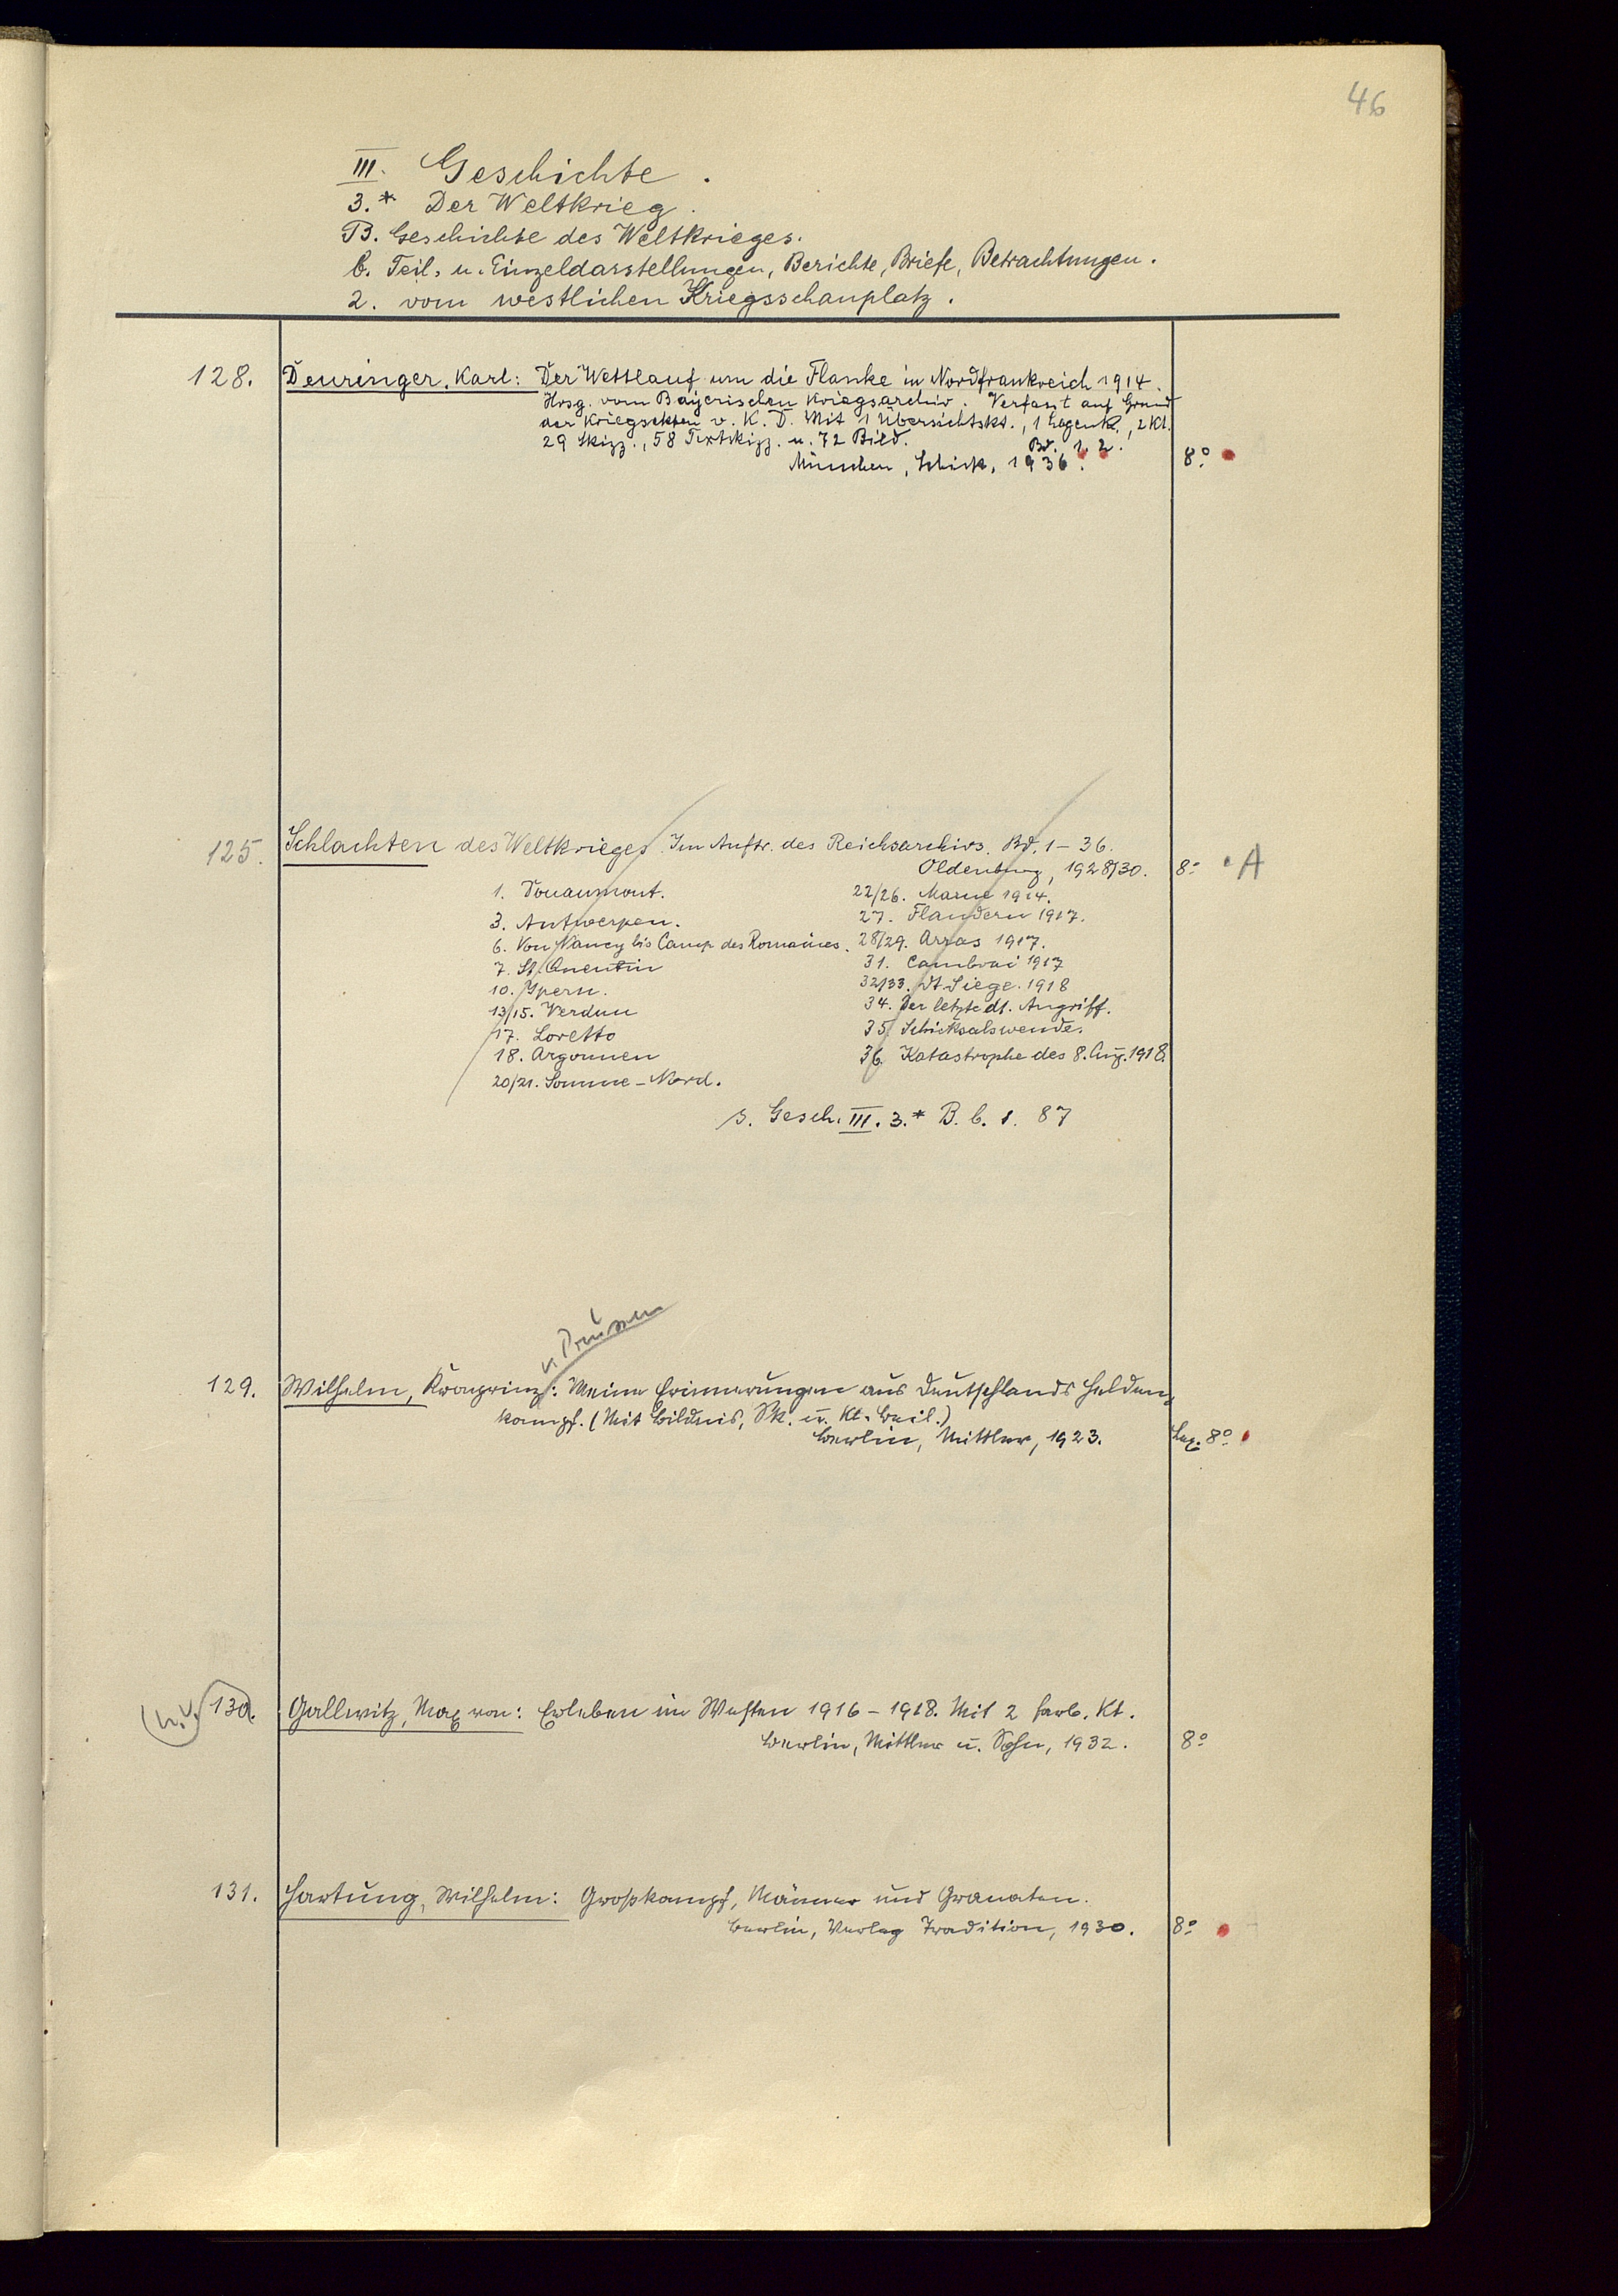 46
III. Geschichte.
3.* Der Weltkrieg.
B. Geschichte des Weltkrieges.
b. Teil- u. Einzeldarstellungen, Berichte, Briefe, Betrachtungen.
2. vom westlichen Kriegsschauplatz.
128. Deuringer, Karl: Der Wettlauf um die Flanke in Nordfrankreich 1914.
Hrsg. vom Bayerischen Kriegsarchiv. Verfasst auf Grund
der Kriegsakten v. K. D. Mit 1 Übersichtskt., 1 Lagenk., 2 Kt.
29 Skizz., 58 Textskizz. u. 72 Bild. Bd. 1. 2.
München, Schick, 1936. 8°
125. Schlachten des Weltkrieges. Im Auftr. des Reichsarchivs. Bd. 1–36.
Oldenburg, 1928/30. 8° A
1. Douaumont. 22/26. Marne 1914.
3. Antwerpen. 27. Flandern 1917.
6. Von Nancy bis Camp des Romains. 28/29. Arras 1917.
7. St. Quentin 31. Cambrai 1917
10. Ypern. 32/33. Dt. Siege. 1918
13/15. Verdun 34. Der letzte dt. Angriff.
17. Loretto 35. Schicksalswende.
18. Argonnen 36. Katastrophe des 8. Aug. 1918.
20/21. Somme-Nord.
s. Gesch. III. 3.* B. b. 1. 87
v. Preussen
129. Wilhelm, Kronprinz: Meine Erinnerungen aus Deutschlands Helden-
kampf. (Mit Bildnis, Sk. u. Kt. Beil.)
Berlin, Mittler, 1923. Lex. 8°
(n.v.) 130. Gallwitz, Max von: Erleben im Westen 1916–1918. Mit 2 farb. Kt.
Berlin, Mittler u. Sohn, 1932. 8°
131. Hartung, Wilhelm: Großkampf, Männer und Granaten.
Berlin, Verlag Tradition, 1930. 8°